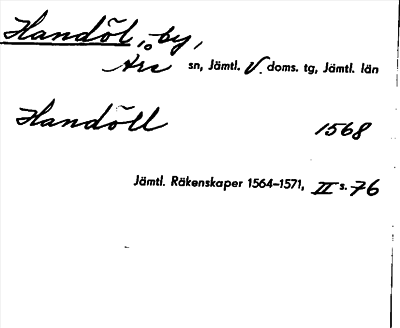 Handöl, by,
Åre sn, Jämtl. V. doms. tg, Jämtl. län
Handöll 1568
Jämtl. Räkenskaper 1564–1571, II s. 76